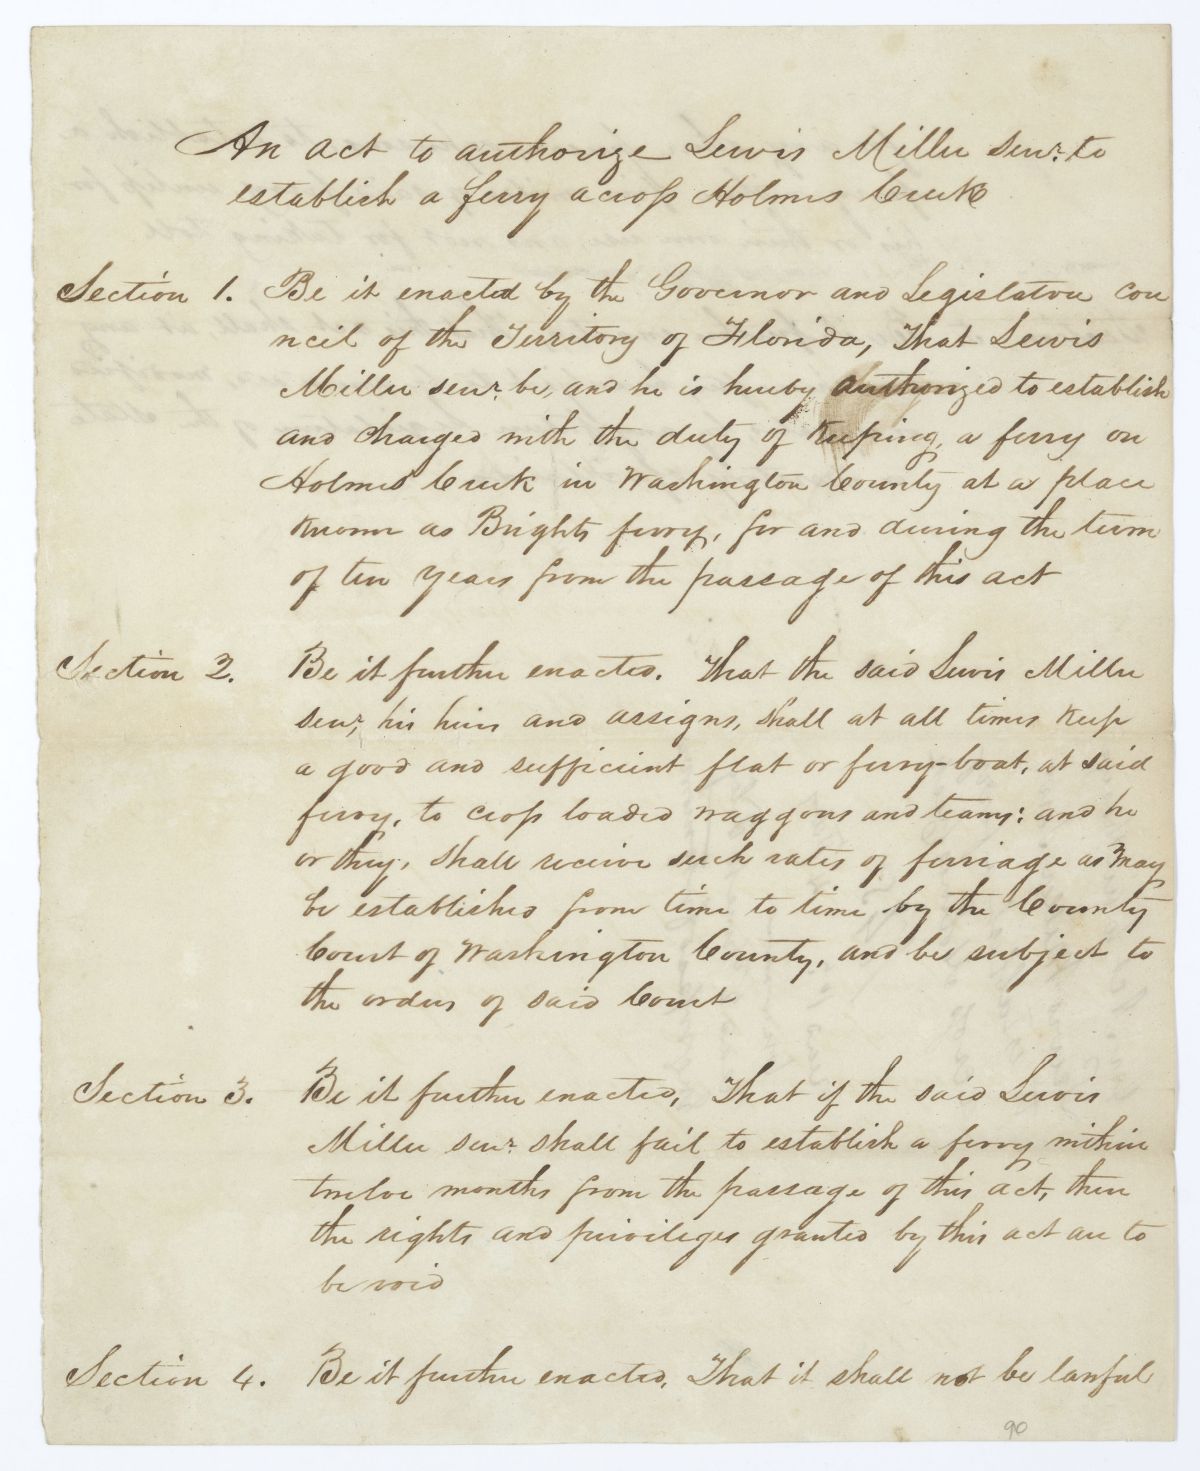 An act to authorize Lewis Miller senr. to
establish a ferry across Holmes Creek
Section 1. Be it enacted by the Governor and Legislative cou
ncil of the Territory of Florida, That Lewis
Miller senr. be, and he is hereby authorized to establish
and charged with the duty of keeping, a ferry on
Holmes Creek in Washington County at a place
known as Brights ferry, for and during the term
of ten years from the passage of this act
Section 2. Be it further enacted. That the said Lewis Miller
senr, his heirs and assigns, shall at all times keep
a good and sufficient flat or ferry-boat, at said
ferry, to cross loaded waggons and teams; and he
or they, shall receive such rates of ferriage as may
be established from time to time by the County
Court of Washington County, and be subject to
the orders of said Court
Section 3. Be it further enacted, That if the said Lewis
Miller senr. shall fail to establish a ferry within
twelve months from the passage of this act, then
the rights and privileges granted by this act are to
be void
Section 4. Be it further enacted, That it shall not be lawful
90